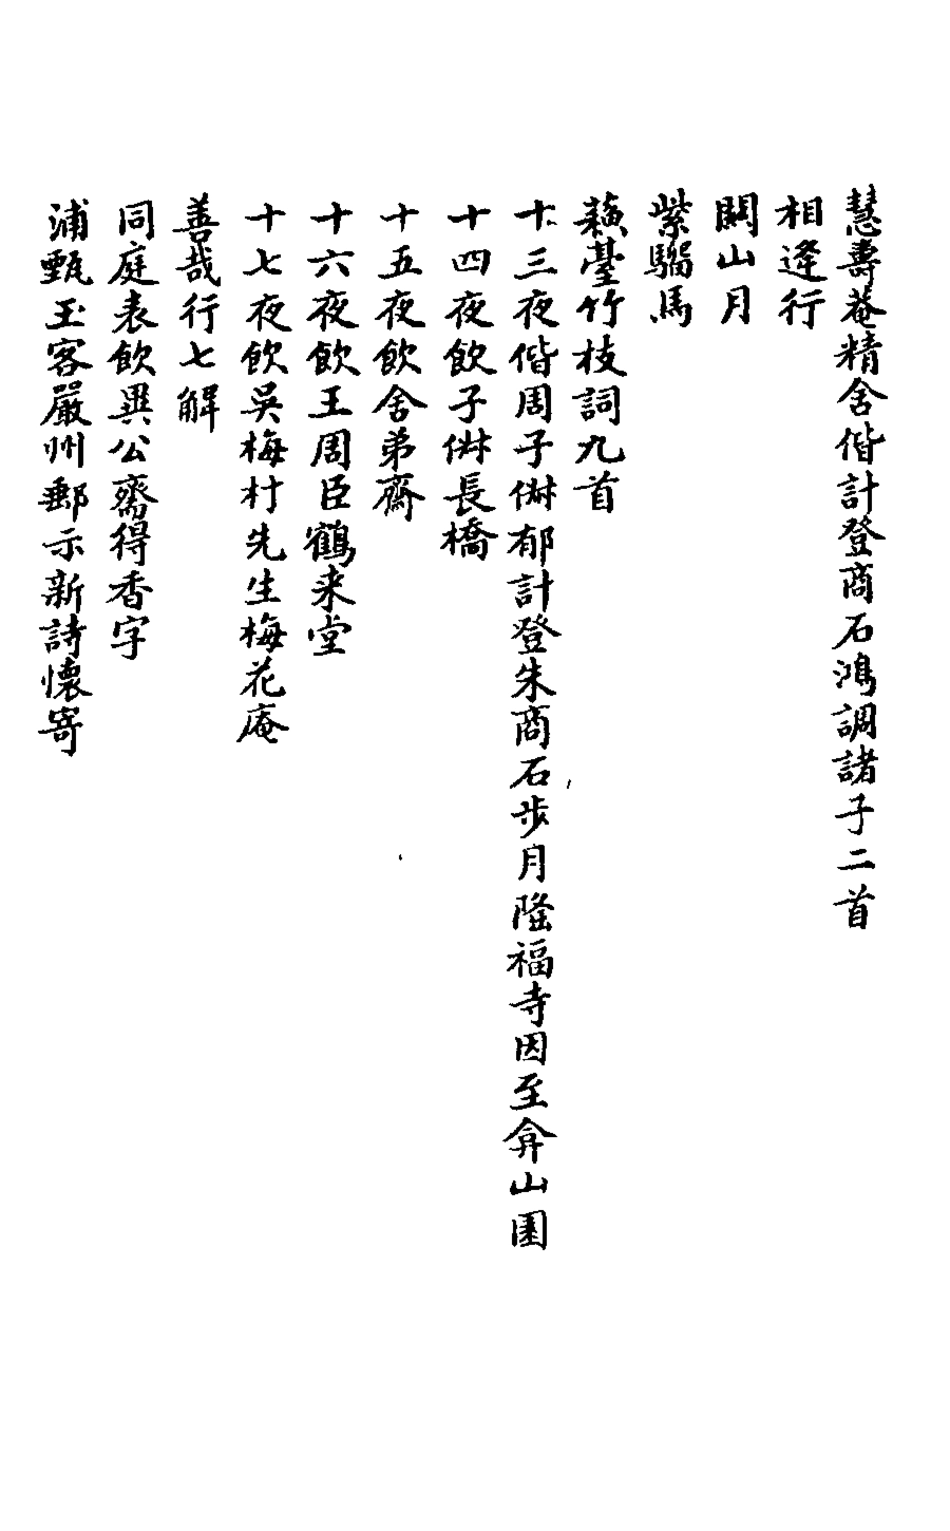 慧壽菴精舍偕計登商石鴻調諸子二首
相逢行
關山月
紫騮馬
蘓臺竹枝詞九首
十三夜偕周子俶郁計登朱商石步月隆福寺因至弇山園
十四夜飲子俶長橋
十五夜飲舍弟齋
十六夜飲王周臣鶴来堂
十七夜飲吳梅村先生梅花庵
善哉行七解
同庭表飲異公齋得香字
浦甄玉客嚴州郵示新詩懷寄